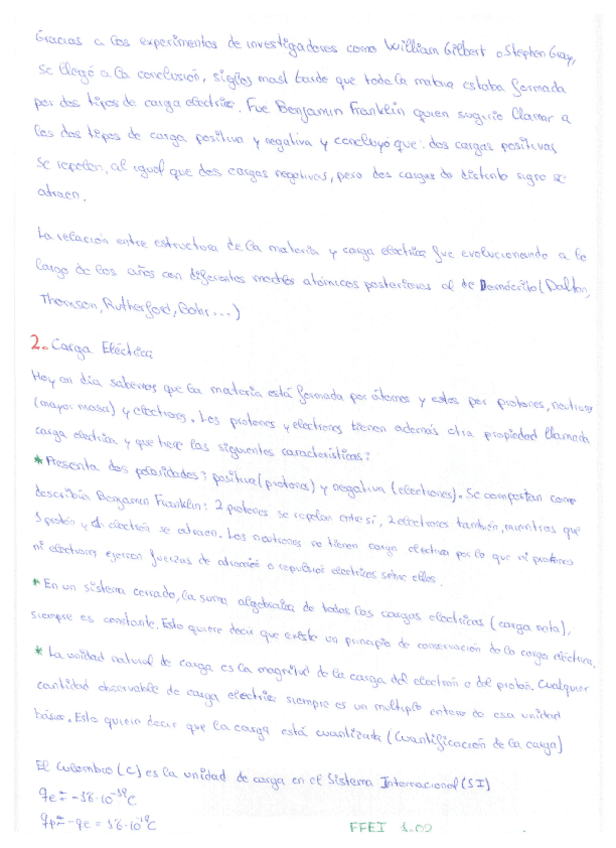 Gracias a los experimentos de investigadores como William Gilbert o Stephen Gray,
se llegó a la conclusión, siglos mas tarde que toda la materia estaba formada
por dos tipos de carga electrica. Fue Benjamin Franklin quien sugirio llamar a
los dos tipos de carga positiva y negativa y concluyó que: dos cargas positivas
se repelen, al igual que dos cargas negativas, pero dos cargas de distinto signo se
atraen.
La relación entre estructura de la materia y carga eléctrica fue evolucionando a lo
largo de los años con diferentes atómicos posteriores al de Demócrito (Dalton,
Thomson, Rutherford, Bohr...)
2. Carga Eléctrica
Hoy en día sabemos que la materia está formada por átomos y estos por protones, neutrones
(mayor masa) y electrons. Los protones y electrones tienen además otra propiedad llamada
carga eléctrica y que tiene las siguientes características:
* Presenta dos polaridades: positiva (protones) y negativa (electrones). Se comportan como
describía Benjamin Franklin: 2 protones se repelen entre sí, 2 electrones también, mientras que
1 protón y 1 electrón se atraen. Los neutrones no tienen carga electrica por lo que ni protones
ni electrones ejercen fuerzas de atracción o repulsion electricas sobre ellos.
* En un sistema cerrado, la suma algebraica de todas las cargas electricas (carga neta),
siempre es constante. Esto quiere decir que existe un principio de conservación de la carga eléctrica.
* La unidad natural de carga es la magnitud de la carga del electrón o del protón. Cualquier
cantidad observable de carga electrica siempre es un multiplo entero de esa unidad
básica. Esto quiere decir que la carga está cuantizada (Cuantificación de la carga)
El Culombio (C) es la unidad de carga en el Sistema Internacional (SI)
qe = -1'6·10⁻¹⁹C
qp = -qe = 1'6·10⁻¹⁹C
FFEI 1.02